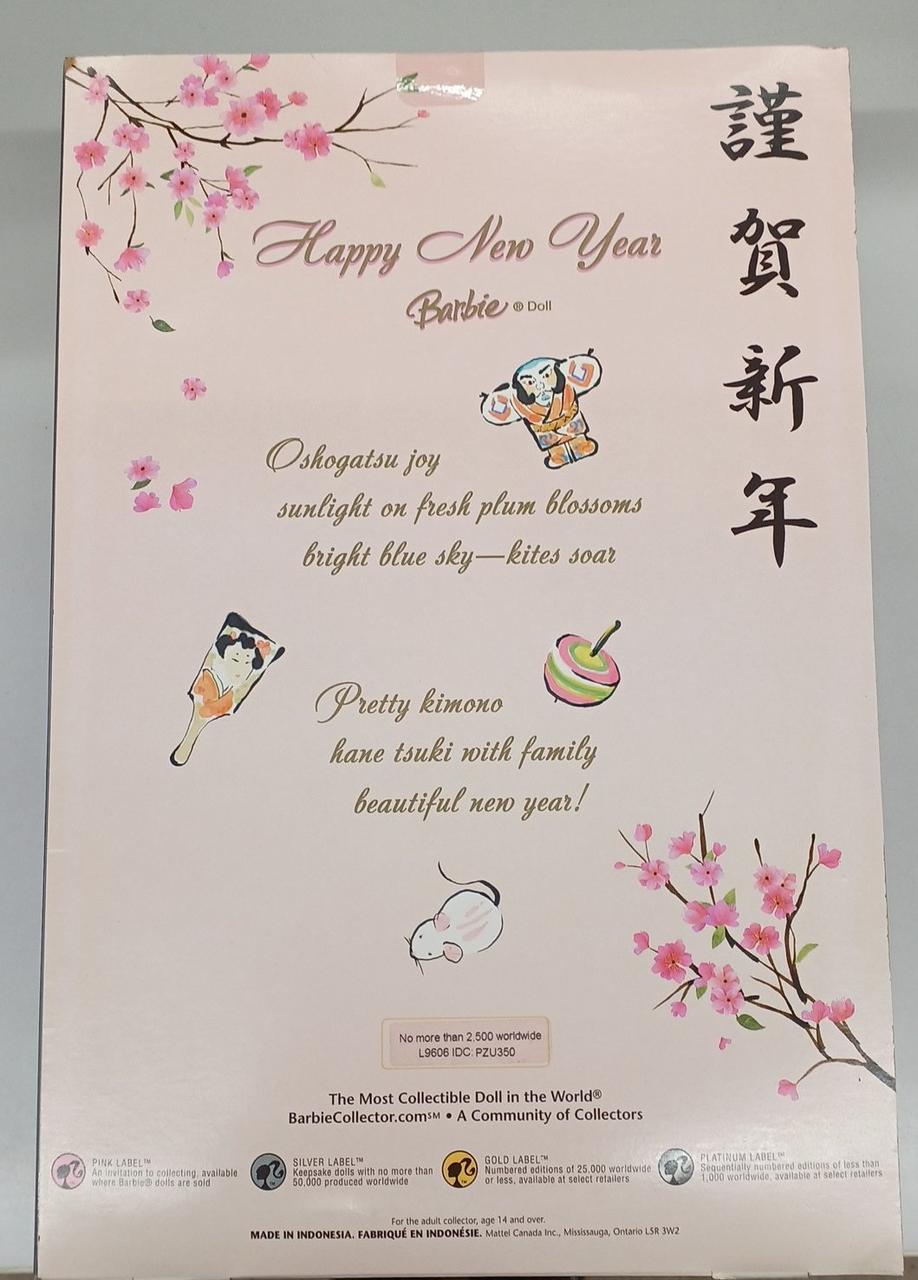 謹賀新年
Happy New Year
Barbie® Doll
Oshogatsu joy
sunlight on fresh plum blossoms
bright blue sky—kites soar
Pretty kimono
hane tsuki with family
beautiful new year!
No more than 2,500 worldwide
L9606 IDC: PZU350
The Most Collectible Doll in the World®
BarbieCollector.com℠ • A Community of Collectors
PINK LABEL™
An invitation to collecting, available
where Barbie® dolls are sold
SILVER LABEL™
Keepsake dolls with no more than
50,000 produced worldwide
GOLD LABEL™
Numbered editions of 25,000 worldwide
or less, available at select retailers
PLATINUM LABEL™
Sequentially numbered editions of less than
1,000 worldwide, available at select retailers
For the adult collector, age 14 and over.
MADE IN INDONESIA. FABRIQUÉ EN INDONÉSIE. Mattel Canada Inc., Mississauga, Ontario L5R 3W2